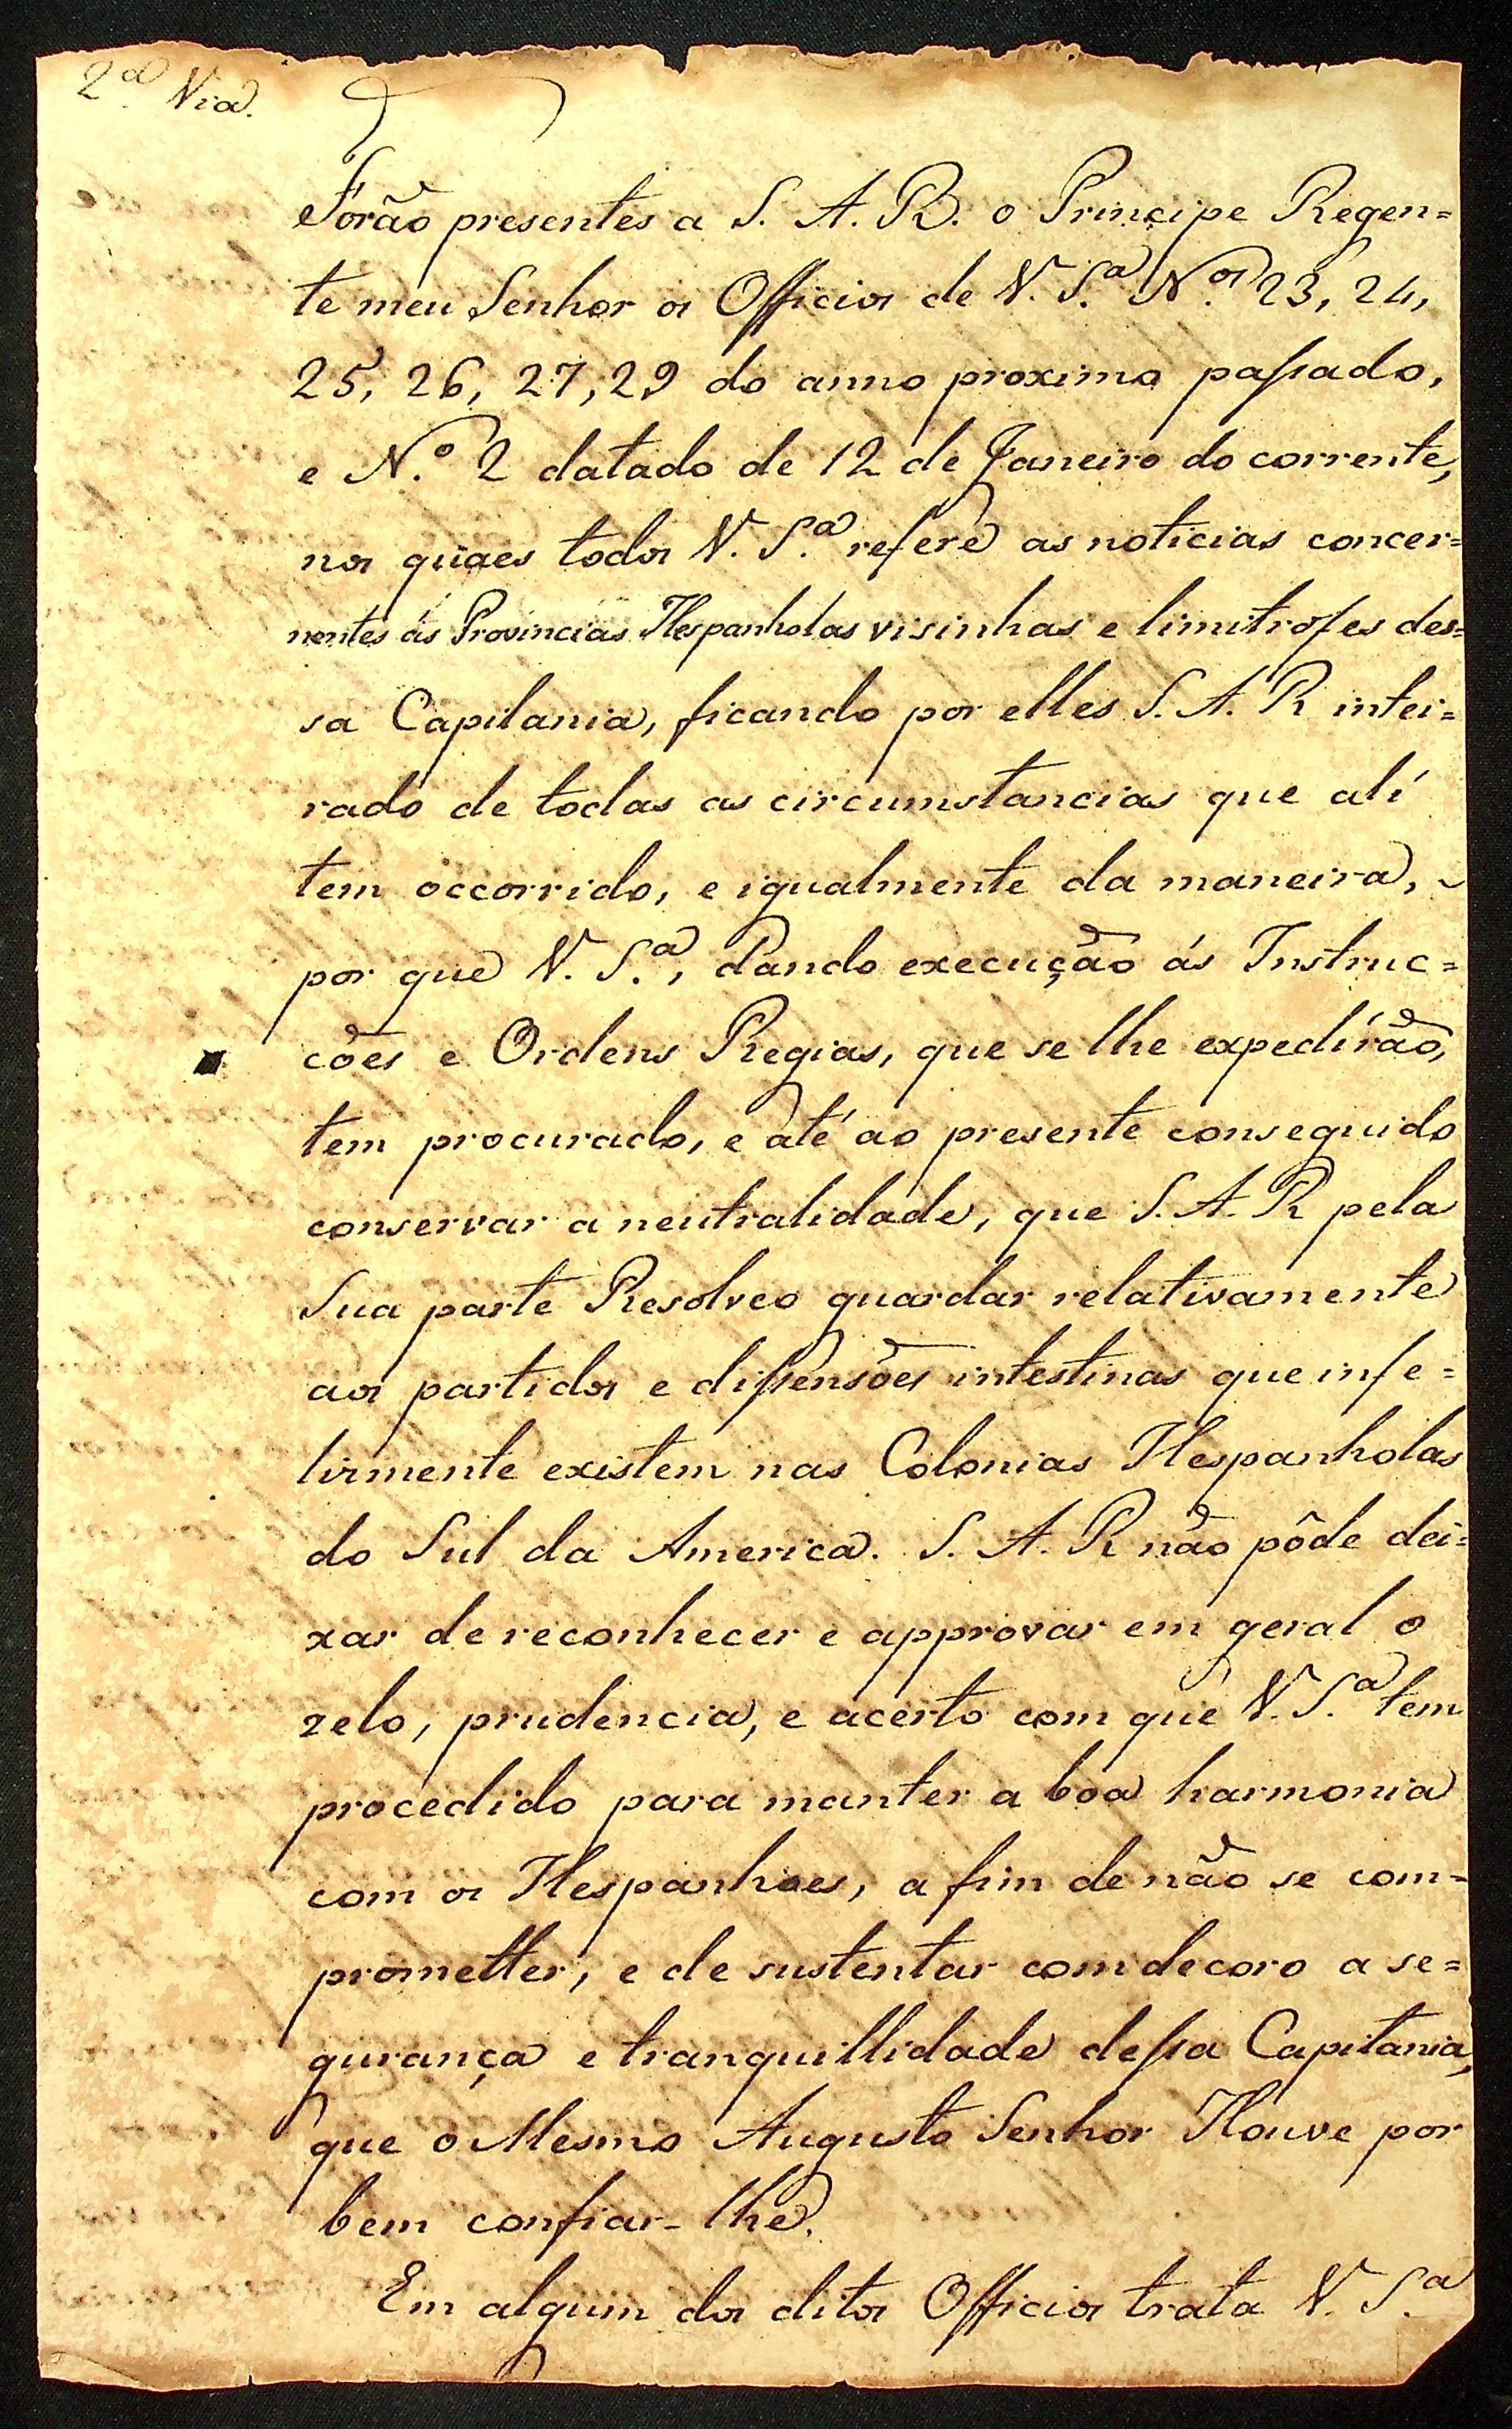 2.ª Via.
Forão presentes a S. A. R. o Principe Regen=
te meu Senhor os Officios de V. S.ª N.os 23, 24,
25, 26, 27, 29 do anno proximo passado,
e N.º 2 datado de 12 de Janeiro do corrente,
nos quaes todos V. S.ª refere as noticias concer=
nentes ás Provincias Hespanholas visinhas e limitrofes des=
sa Capitania, ficando por elles S. A. R intei=
rado de todas as circumstancias que alí
tem occorrido, e igualmente da maneira,
por que V. S.ª, dando execução ás Instruc=
cões e Ordens Regias, que se lhe expedírão,
tem procurado, e até ao presente conseguido
conservar a neutralidade, que S. A. R pela
Sua parte Resolveo guardar relativamente
aos partidos e dissensões intestinas que infe=
lizmente existem nas Colonias Hespanholas
do Sul da America. S. A. R não pôde dei=
xar de reconhecer e approvar em geral o
zelo, prudencia, e acerto com que V. S.ª tem
procedido para manter a boa harmonia
com os Hespanhoes, a fim de não se com=
prometter, e de sustentar com decoro a se=
gurança e tranquillidade dessa Capitania,
que o Mesmo Augusto Senhor Houve por
bem confiar-lhe.
Em algum dos ditos Officios trata V. S.ª